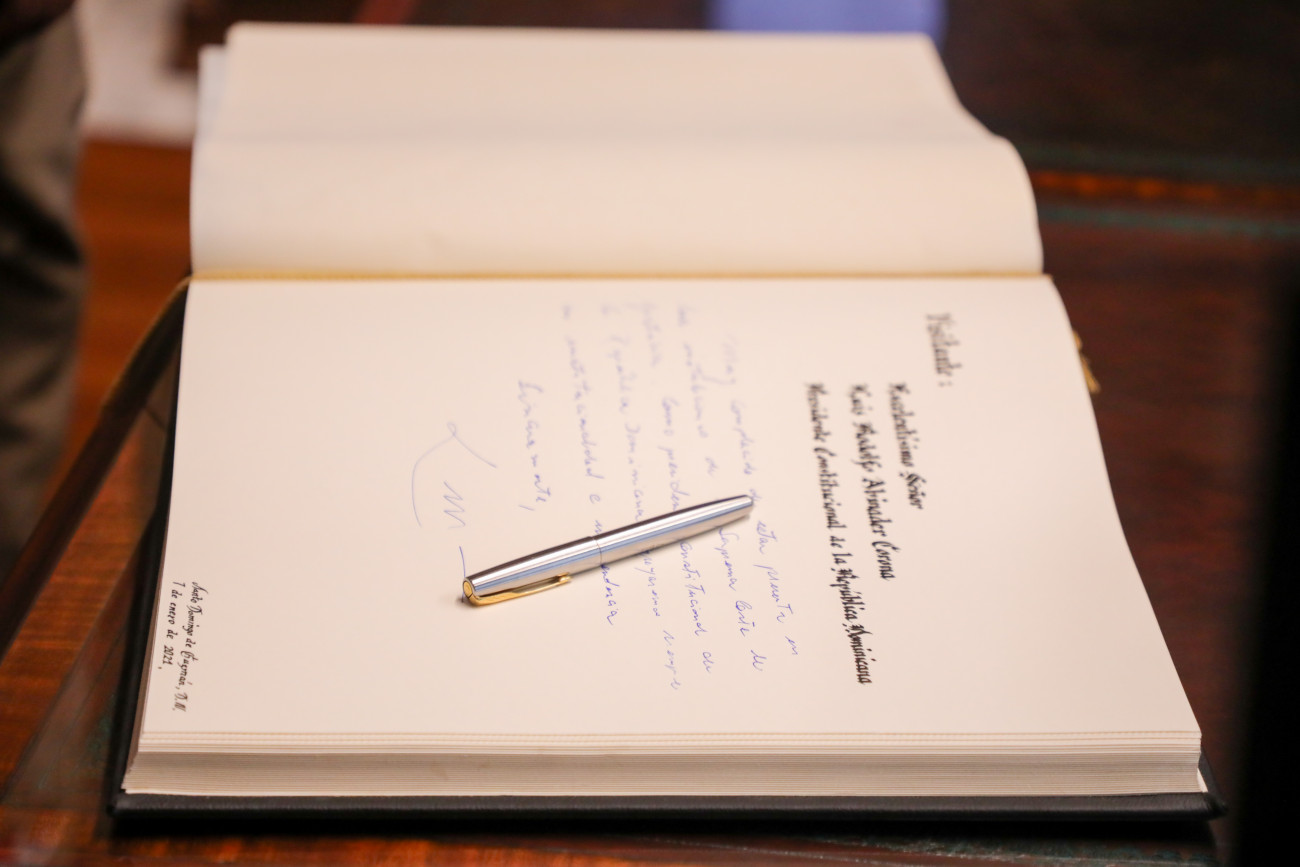 Visitante:
Excelentísimo Señor
Luis Rodolfo Abinader Corona
Presidente Contitucional de la República Dominicana
Muy complacido de estar presente en
de Suprema Corte de
Justicia. Como presidente constitucional de
República Dominicana, apoyaremos siempre
su institucionalidad e
Sinceramente,
Santo Domingo de Guzmán, D.N.
7 de enero de 2021.